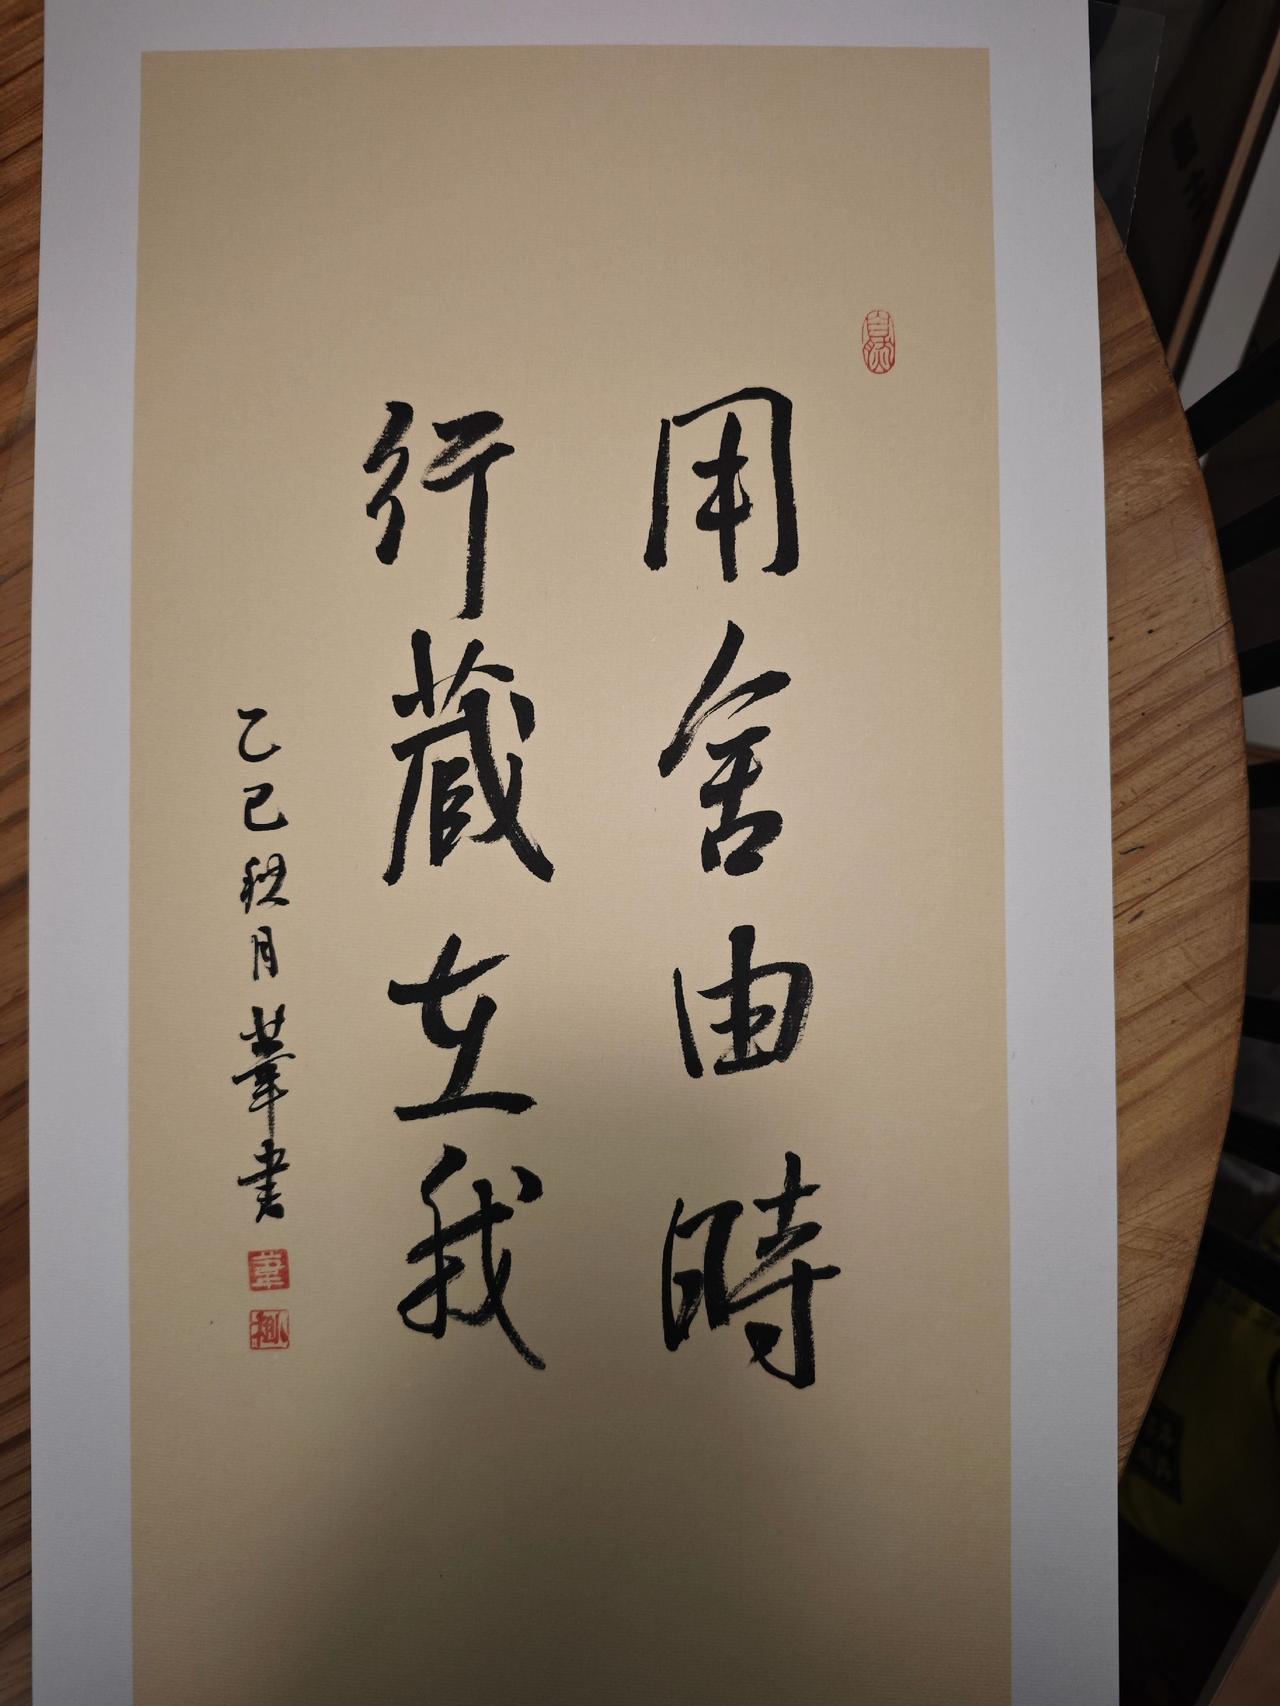 用舍由時
行藏在我
乙巳秋月華書